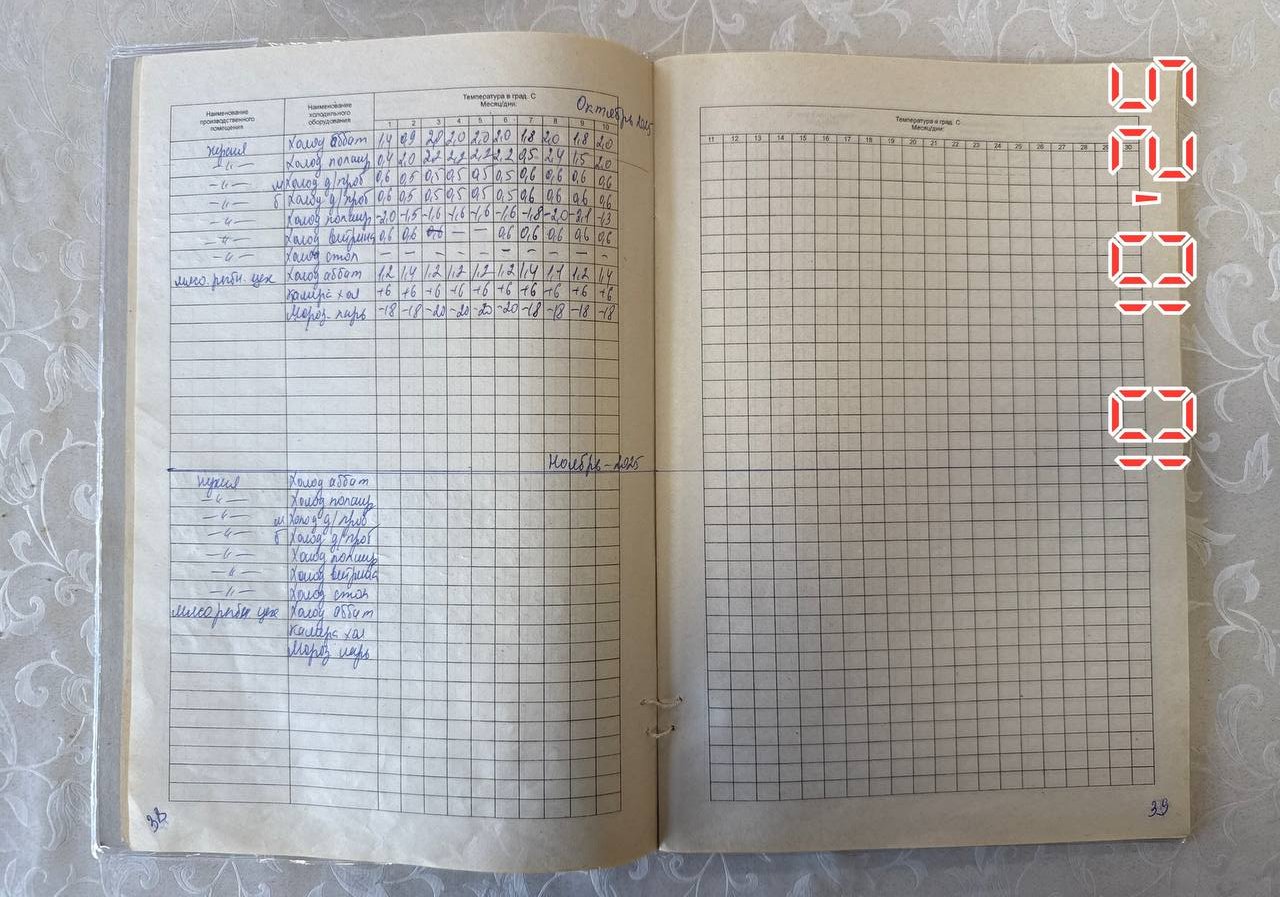 Октябрь 2025
Наименование производственного помещения | Наименование холодильного оборудования | Температура в град. С Месяц/дни:
1 2 3 4 5 6 7 8 9 10
кухня Холод аббат 1,4 0,9 2,0 2,0 2,0 1,8 2,0 1,8 2,0
—"— Холод 0,4 2,0 2,2 2,2 2,2 2,2 0,5 2,4 1,5 2,0
—"— м Холод д/проб 0,6 0,5 0,5 0,5 0,5 0,5 0,6 0,6 0,6 0,6
—"— б Холод д/проб 0,6 0,5 0,5 0,5 0,5 0,5 0,6 0,6 0,6 0,6
—"— Холод -2,0 -1,5 -1,6 -1,6 -1,6 -1,6 -1,8 -2,0 -2,1 -1,3
—"— Холод витрина 0,6 0,6 — — 0,6 0,6 0,6 0,6 0,6
—"— Холод стол — — — — — — — — — —
мясо рыбн. цех Холод аббат 1,2 1,4 1,2 1,2 1,2 1,2 1,4 1,1 1,2 1,4
Камера хол +6 +6 +6 +6 +6 +6 +6 +6 +6 +6
Мороз. ларь -18 -18 -20 -20 -20 -20 -18 -18 -18 -18
Ноябрь - 2025
кухня Холод аббат
—"— Холод
—"— м Холод д/проб
—"— б Холод д/проб
—"— Холод
—"— Холод витрина
—"— Холод стол
мясо рыбн цех Холод аббат
Камера хол
Мороз ларь
38
Температура в град. С
Месяц/дни:
11 12 13 14 15 16 17 18 19 20 21 22 23 24 25 26 27 28 29 30
39
10 10 '25